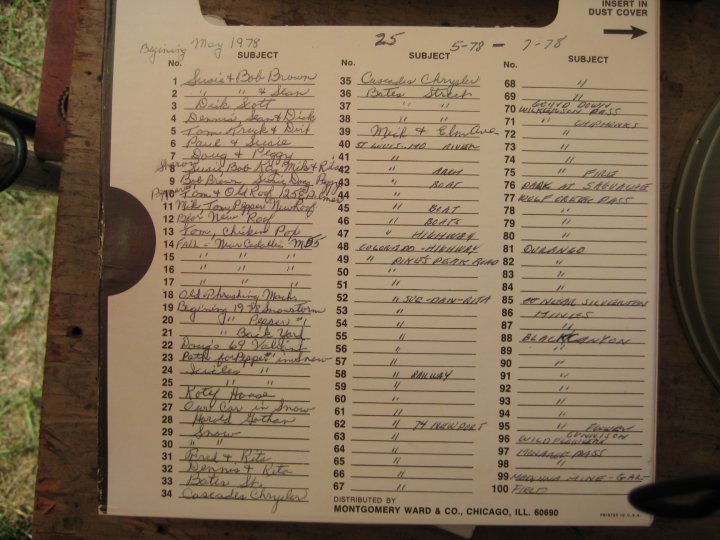 INSERT IN
DUST COVER
Begining May 1978
25
5-78 - 7-78
SUBJECT
No.
1 Susie & Bob Brown
2 " " & Sean
3 Dick Scott
4 Dennis, Sean & Dick
5 Tom, Kruck & Dirk
6 Paul & Susie
7 Doug & Peggy
8 Susie, Bob Kay, Mike & Rita
9 Bob Brown Susie Doug Peggy
10 Tom & Old Roof 125 E.
11 Mike, Tom, Pepper New Roof
12 New Roof
13 Tom, Chicken Pox
14 FALL - New Cadillac
15 " " "
16 " " "
17 " " "
18 Old Thrashing Machine
19 Begining 1978 Snowstorm
20 " Pepper #1
21 " Back Yard
22 Doug's 69 Valiant
23 Path for Pepper #1 in snow
24 Icicles "
25 " "
26 Kotef House
27 Our Car in Snow
28 Harold Gothan
29 Snow
30 " "
31 Fred & Rita
32 Dennis & Rita
33 Bates St.
34 Cascades Chrysler
SUBJECT
No.
35 Cascades Chrysler
36 Bates Street
37 " "
38 " "
39 Meik & Elm Ave
40 ST LOUIS-MO RIVER
41 "
42 " ARCH
43 " BOAT
44 "
45 " BOAT
46 " BOATS
47 " HIGHWAY
48 COLORADO-HIGHWAY
49 " PIKE'S PEAK ROAD
50 "
51 "
52 " SUE-DAN-RITA
53 "
54 "
55 "
56 "
57 "
58 " RAILWAY
59 "
60 "
61 "
62 " 74 NEWPORT
63 "
64 "
65 "
66 "
67 "
DISTRIBUTED BY
MONTGOMERY WARD & CO., CHICAGO, ILL. 60690
SUBJECT
No.
68 "
69 "
70 GOING DOWN
WILKERSON PASS
71 " CHIPMUNKS
72 "
73 "
74 "
75 "
76 PARK AT SAGUACHE
77 WOLF CREEK PASS
78 "
79 "
80 "
81 DURANGO
82 "
83 "
84 "
85 NEAR SILVERTON
86 MINES
87 "
88 BLACK CANYON
89 "
90 "
91 "
92 "
93 "
94 "
95 " FLOWER
96 WILDFLOWERS GUNNISON
97 MONARCH PASS
98 "
99 MADONNA MINE-GAR-
100 FIELD
PRINTED IN U.S.A.